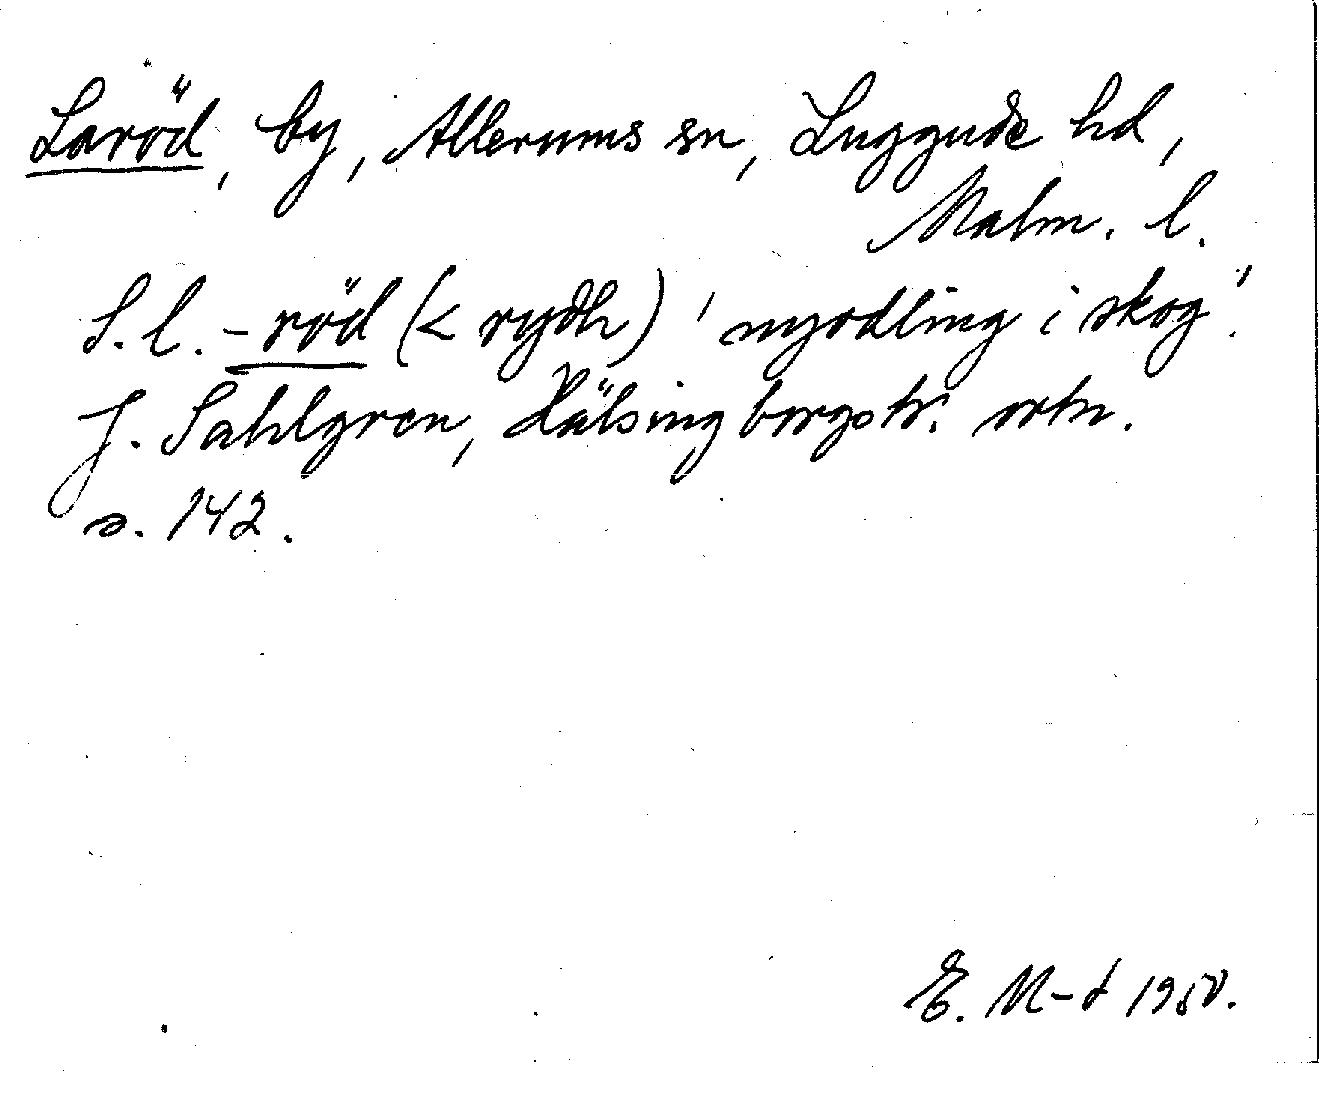 Laröd, by, Allerums sn, Luggude hd,
Malm. l.
S. l. -röd (< rydh) 'nyodling i skog'.
J. Sahlgren, Hälsingborgstr. ortn.
s. 142.
E. M-d 1950.